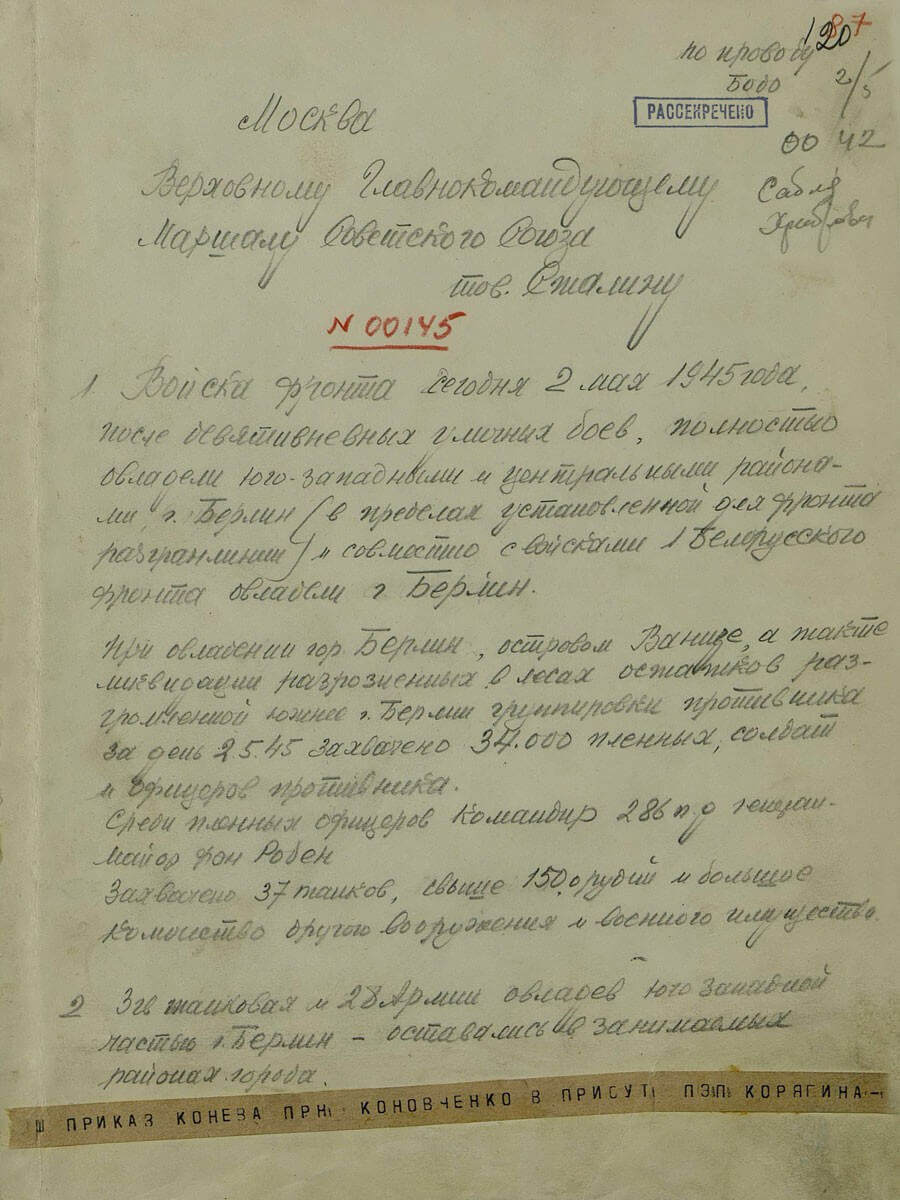 87
120
по проводу
Бодо
2/5
РАССЕКРЕЧЕНО
00 42
Москва
Верховному Главнокомандующему
Сабля
Маршалу Советского Союза
тов. Сталину
N 00145
1. Войска фронта сегодня 2 мая 1945 года,
после девятидневных уличных боев, полностью
овладели юго-западными и центральными района-
ми г. Берлин (в пределах установленной для фронта
разгранлинии) и совместно с войсками 1 Белорусского
фронта овладели г. Берлин.
При овладении гор Берлин, островом Ванизе, а также
ликвидации разрозненных в лесах остатков раз-
громленной южнее г. Берлин группировки противника
за день 2.5.45 захвачено 34.000 пленных, солдат
и офицеров противника.
Среди пленных офицеров командир 286 п.д генерал-
майор фон Робен
Захвачено 37 танков, свыше 150 орудий и большое
количество другого вооружения и военного имущества.
2 3 гв танковая и 28 Армии овладев юго западной
частью г. Берлин – оставались в занимаемых
районах города.
Ш ПРИКАЗ КОНЕВА ПРН КОНОВЧЕНКО В ПРИСУТ ПЗП КОРЯГИНА–